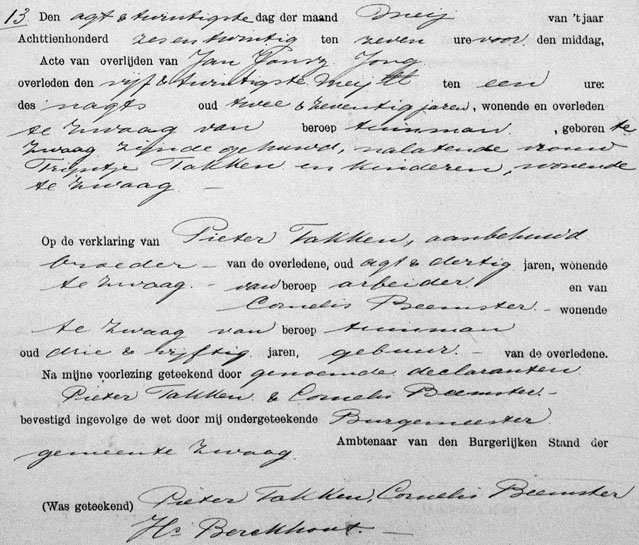 13 Den agt & twintigste dag der maand Meij van 't jaar
Achttienhonderd zesentwintig ten zeven ure voor den middag,
Acte van overlijden van Jan Jansz Jong
overleden den vijf & twintigste Meij ll ten een ure:
des nagts oud twee & zeventig jaren, wonende en overleden
te Zwaag van beroep tuinman, geboren te
Zwaag zijnde gehuwd, nalatende vrouw
Trijntje Takken en kinderen, wonende
te Zwaag —
Op de verklaring van Pieter Takken, aanbehuwd
broeder — van de overledene, oud agt & dertig jaren, wonende
te Zwaag — van beroep arbeider en van
Cornelis Beemster — wonende
te Zwaag van beroep tuinman
oud drie & vijftig jaren, gebuur — van de overledene.
Na mijne voorlezing geteekend door genoemde declaranten
Pieter Takken & Cornelis Beemster —
bevestigd ingevolge de wet door mij ondergeteekende Burgemeester
Ambtenaar van den Burgerlijken Stand der
gemeente Zwaag.
(Was geteekend) Pieter Takken, Cornelis Beemster
Hs Berckhout. —